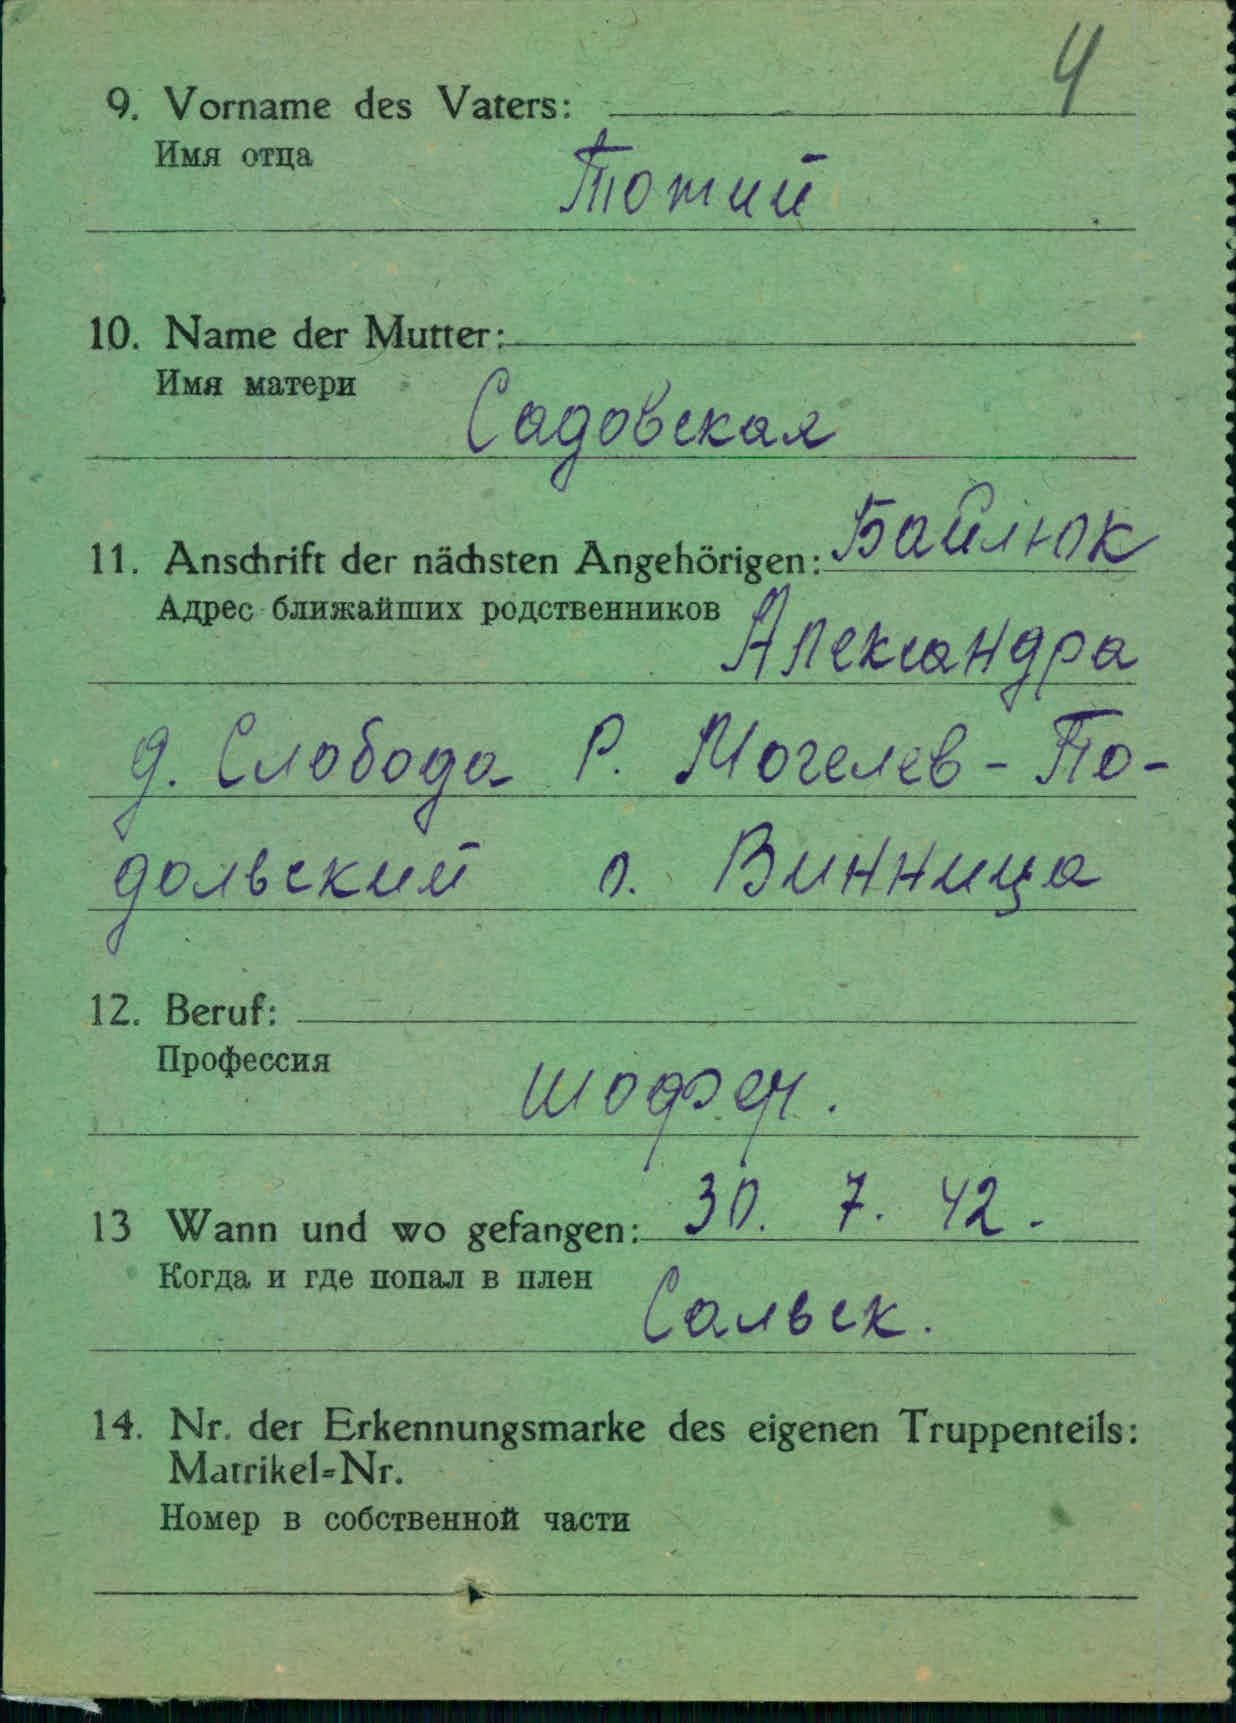 4
9. Vorname des Vaters:
Имя отца
Тотий
10. Name der Mutter:
Имя матери
Садовская
11. Anschrift der nächsten Angehörigen: Байлюк
Адрес ближайших родственников
Александра
д. Слобода Р. Могелев - По-
дольский о. Винница
12. Beruf:
Профессия
шофер.
13 Wann und wo gefangen: 30. 7. 42.
Когда и где попал в плен
Сальск.
14. Nr. der Erkennungsmarke des eigenen Truppenteils:
Matrikel=Nr.
Номер в собственной части